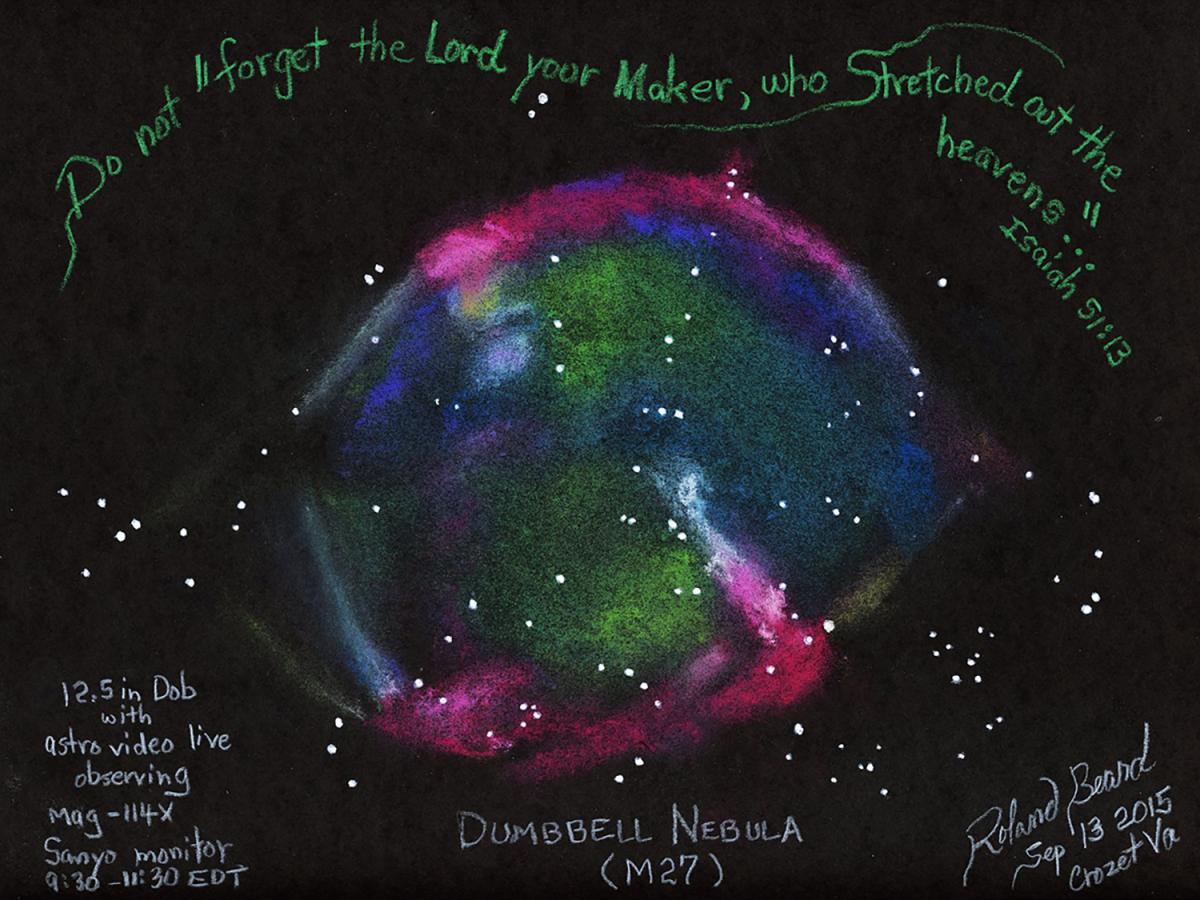 Do not "forget the Lord your Maker, who Stretched out the
heavens"...
Isaiah 51:13
12.5 in Dob
with
astro video live
observing
Mag - 114X
Sanyo monitor
9:30 - 11:30 EDT
DUMBBELL NEBULA
(M27)
Roland Beard
Sep 13 2015
Crozet Va